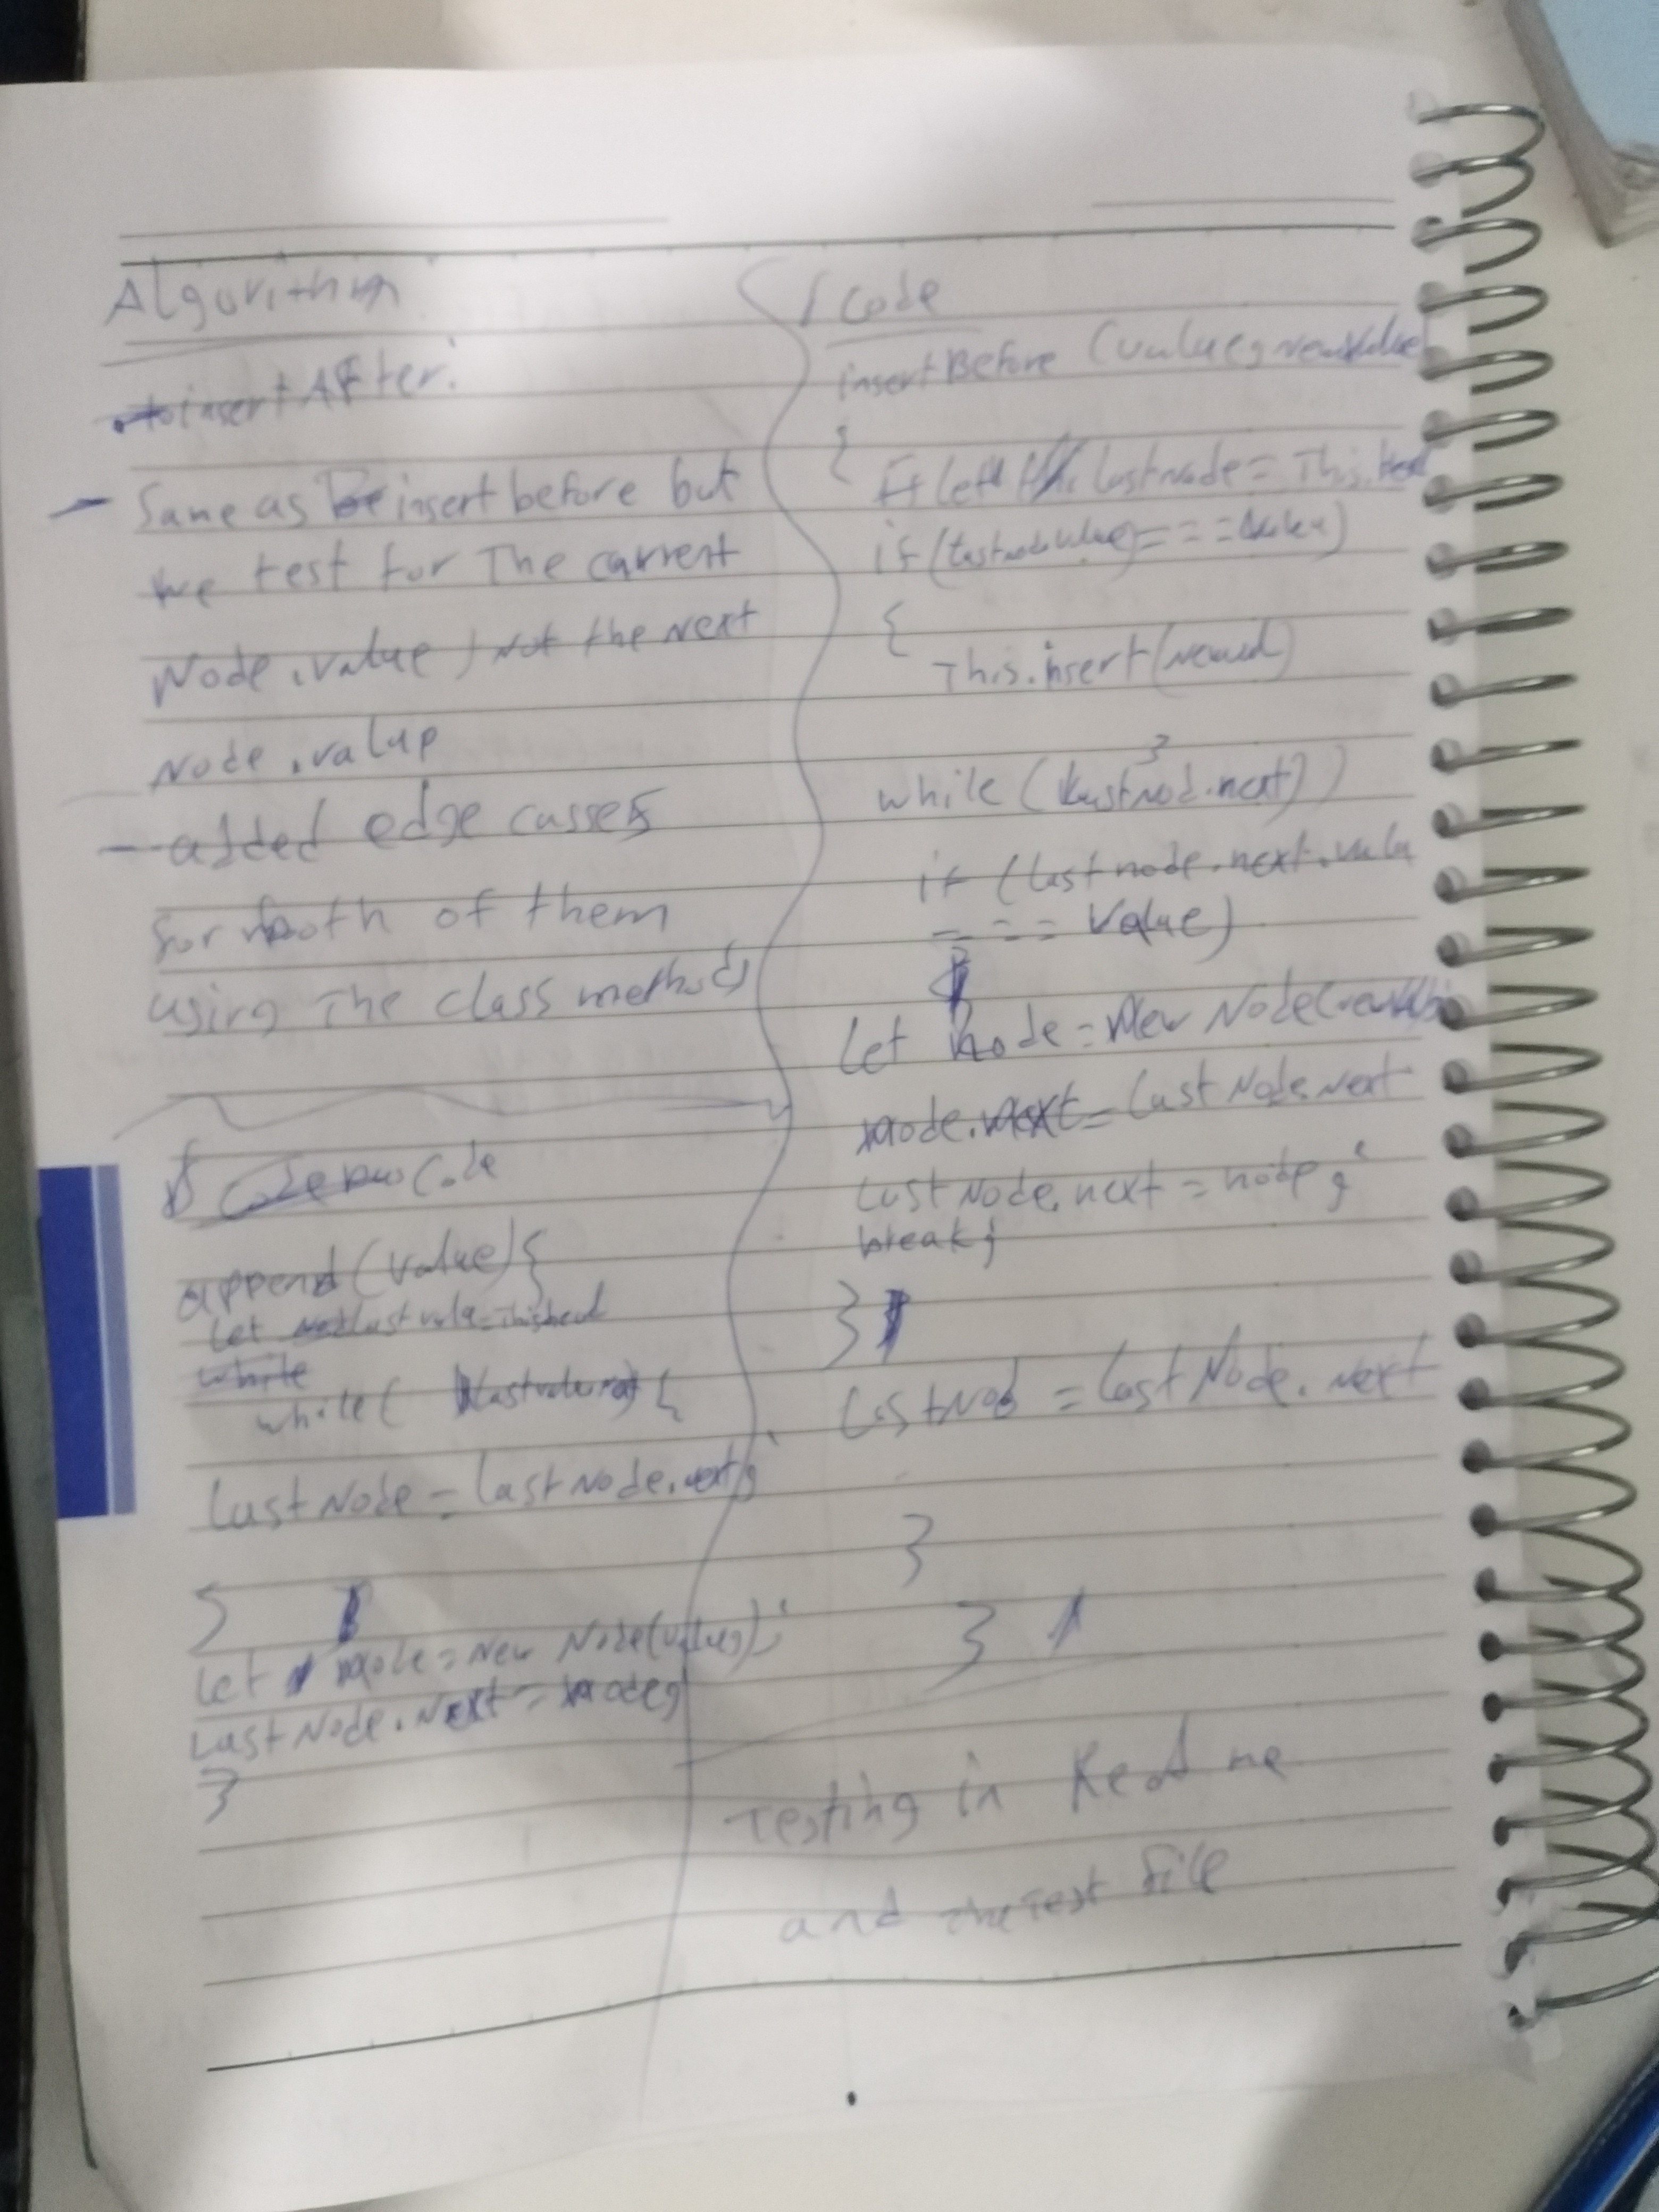 Algorithm
insertAFter:
- Same as insert before but
we test for The current
Node.value, Not the Next
Node.value
- added edge casses
for both of them
using The class methods
Code
append(value){
let last node = This.head
while( lastnode.next) {
last Node = last Node.next;
}
let node = New Node(value);
Last Node.Next = node;
}
Code
insertBefore (value, newvalue
{
let lastnode = This.head
if (lastnode.value === value)
{
This.insert(newval)
}
while (lastNod.next))
if (last node.next.value
=== value)
{
let node = New Node(newval
node.next = last Node.Next
last Node.next = node;
break;
}
lastNod = last Node.next
}
}
Testing in Read me
and the Test file